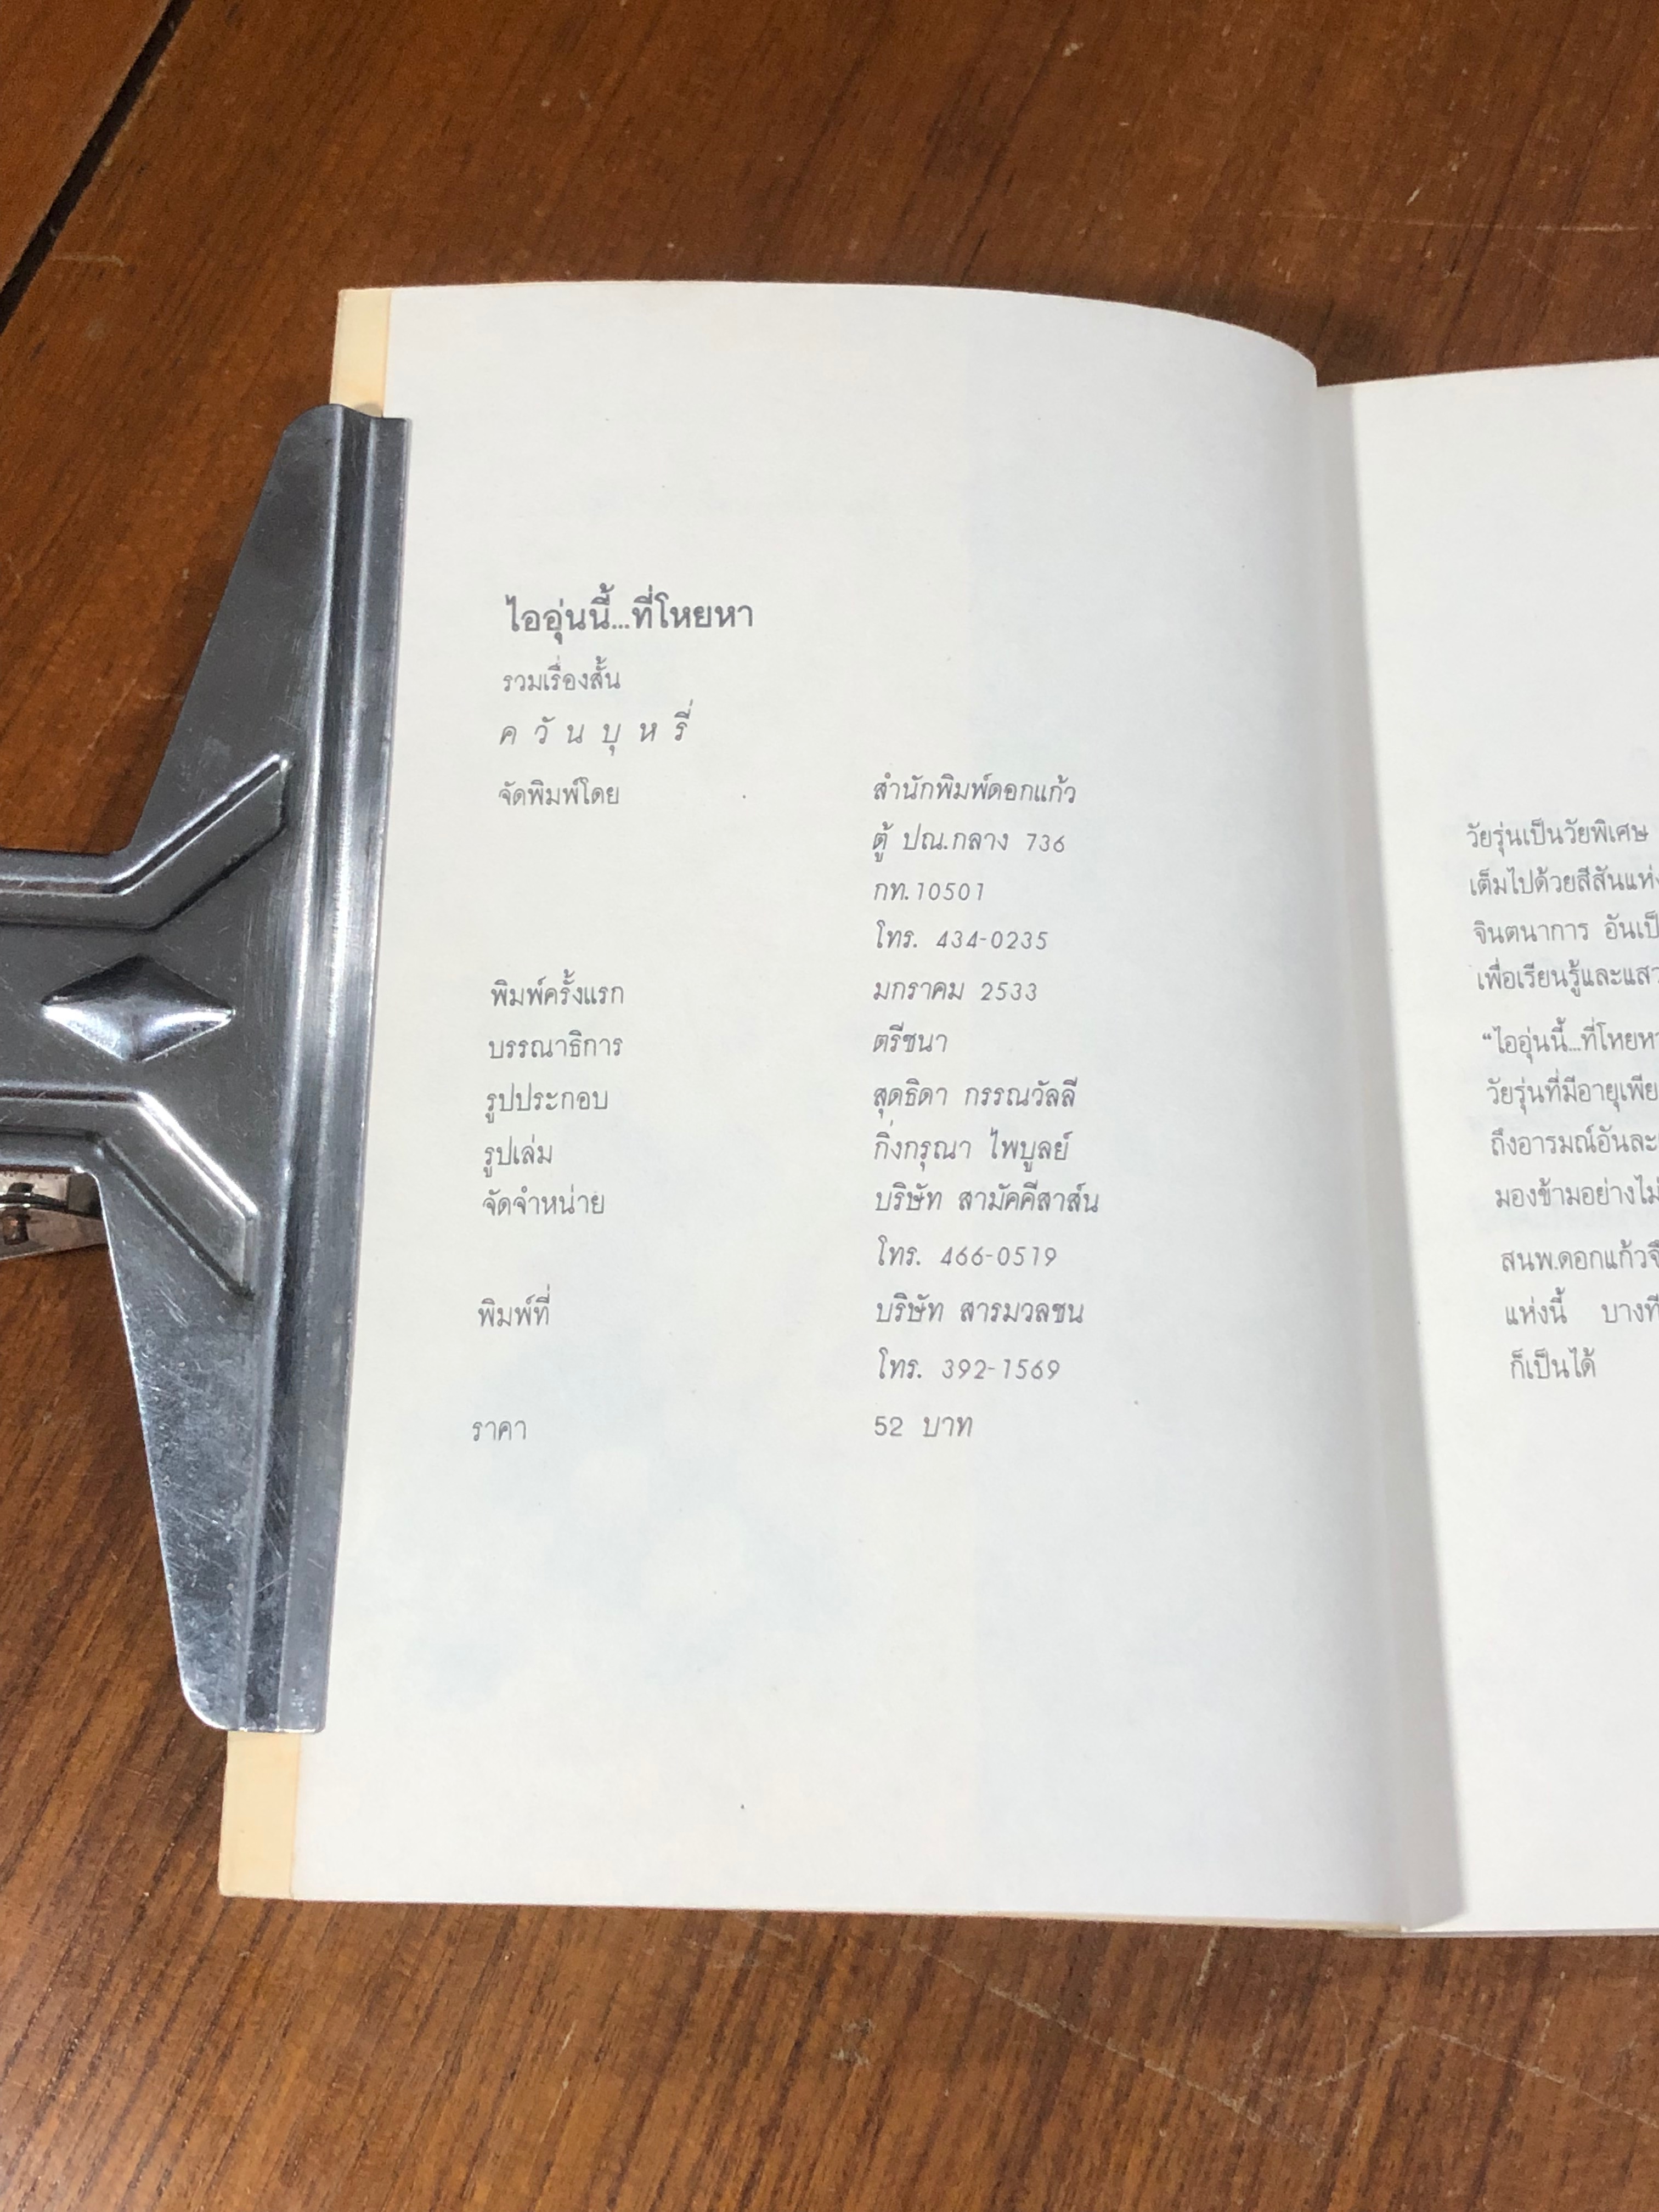 ไออุ่นนี้...ที่โหยหา
รวมเรื่องสั้น
ค วั น บุ ห รี่
จัดพิมพ์โดย สำนักพิมพ์ดอกแก้ว
ตู้ ปณ.กลาง 736
กท.10501
โทร. 434-0235
พิมพ์ครั้งแรก มกราคม 2533
บรรณาธิการ ตรีชนา
รูปประกอบ สุดธิดา กรรณวัลลี
รูปเล่ม กิ่งกรุณา ไพบูลย์
จัดจำหน่าย บริษัท สามัคคีสาส์น
โทร. 466-0519
พิมพ์ที่ บริษัท สารมวลชน
โทร. 392-1569
ราคา 52 บาท
วัยรุ่นเป็นวัยพิเศษ
เต็มไปด้วยสีสันแห่ง
จินตนาการ อันเป็
เพื่อเรียนรู้และแสว
"ไออุ่นนี้...ที่โหยหา
วัยรุ่นที่มีอายุเพีย
ถึงอารมณ์อันละ
มองข้ามอย่างไม่
สนพ.ดอกแก้วจึ
แห่งนี้ บางที
ก็เป็นได้